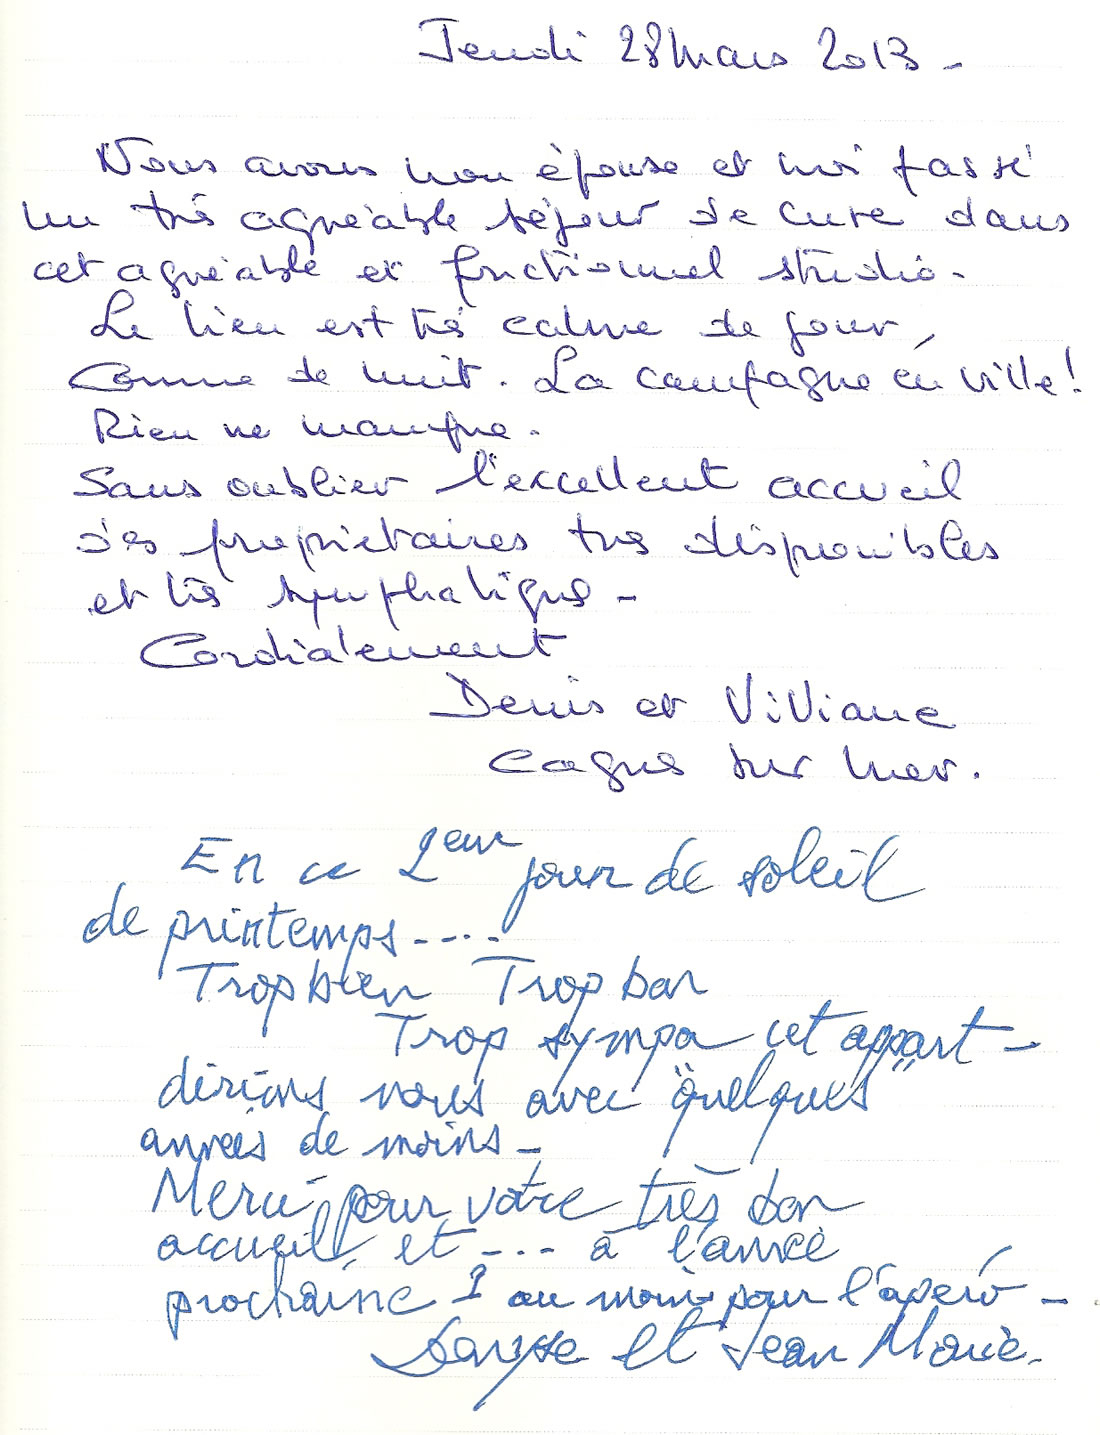 Jeudi 28 Mars 2013 -
Nous avons mon épouse et moi passé
un très agréable séjour de cure dans
cet agréable et fonctionnel studio.
Le lieu est très calme de jour,
Comme de nuit. La campagne en ville!
Rien ne manque.
Sans oublier l'excellent accueil
des propriétaires très disponibles
et très sympathique -
Cordialement
Denis et Viviane
Cagnes sur mer.
En ce 2eme jour de soleil
de printemps - . . .
Trop bien Trop bon
Trop sympa cet appart -
dirions nous avec "quelques"
années de moins -
Merci pour votre très bon
accueil, et - . . . à l'année
prochaine ? au moins pour l'apéro -
et Jean Marie.